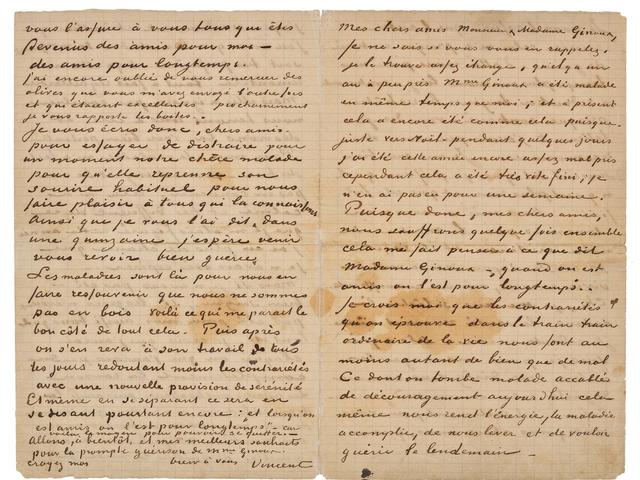 Mes chers amis Monsieur & Madame Ginoux,
je ne sais si vous vous en rappelez,
je le trouve assez étrange, quelqu'un
an à peu près Mme Ginoux a été malade
en même temps que moi; et à présent
cela a encore été comme cela puisque
juste vers Noël – pendant quelques jours
j'ai été cette année encore assez mal pris
cependant cela a été très vite fini; je
n'en ai pas eu pour une semaine.
Puisque donc, mes chers amis,
nous souffrons quelque fois ensemble
cela me fait penser à ce que dit
Madame Ginoux –, quand on est
amis on l'est pour longtemps..
Je crois moi que les contrariétés
qu'on éprouve dans le train train
ordinaire de la vie nous font au
moins autant de bien que de mal
Ce dont on tombe malade accablés
de découragement aujourd'hui cela
même nous rend l'énergie, la maladie
accomplie, de nous lever et de vouloir
guérir le lendemain –
vous l'assure à vous tous qui êtes
devenus des amis pour moi –
des amis pour longtemps.
j'ai encore oublié de vous remercier des
olives que vous m'avez envoyé l'autre fois
et qui étaient excellentes prochainement
je vous rapporte les boites..
Je vous écris donc, chers amis
pour essayer de distraire pour
un moment notre chère malade
pour qu'elle reprenne son
sourire habituel pour nous
faire plaisir à tous qui la connaissons
Ainsi que je vous l'ai dit, dans
une quinzaine j'espère venir
vous revoir bien guérie.
Les maladies sont là pour nous en
faire ressouvenir que nous ne sommes
pas en bois voilà ce qui me parait le
bon côté de tout cela. Puis après
on s'en reva à son travail de tous
les jours redoutant moins les contrariétés
avec une nouvelle provision de sérénité
Et même en se séparant ce sera en
se disant pourtant encore: et lorsqu'on
est amis on l'est pour longtemps – car
voilà le moyen pour pouvoir se quitter
Allons, à bientôt, et mes meilleurs souhaits
pour la prompte guérison de Mme Ginoux.
croyez moi bien à vous Vincent